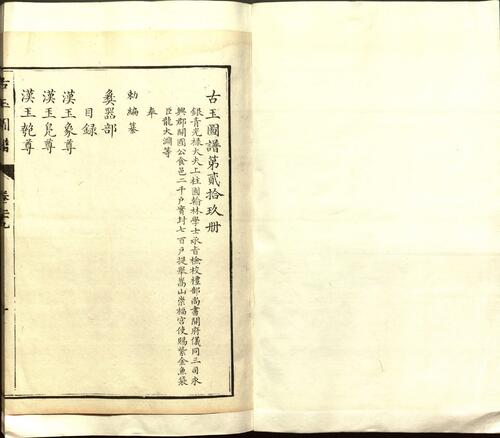 古玉圖譜第貳拾玖册
銀青光祿大夫上柱國翰林學士承旨檢校禮部尚書開府儀同三司永
興郡開國公食邑二千戶實封七百戶提舉嵩山崇福宮使賜紫金魚袋
臣龍大淵等
奉
勅編纂
彝器部
目錄
漢玉象尊
漢玉兕尊
漢玉
尊
古玉圖譜